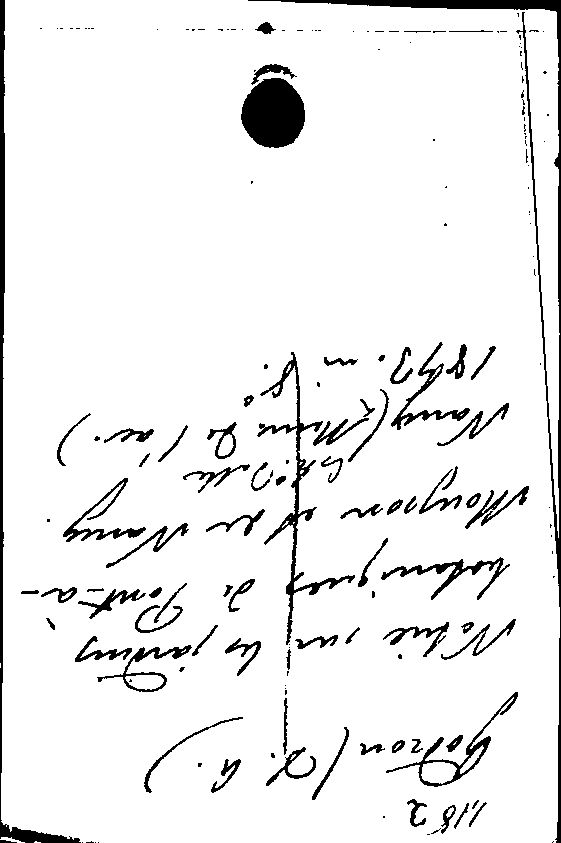 1182
Godron (D. A.)
Notice sur les jardins
botaniques de Pont-à-
Mousson et de Nancy.
Nancy (Mém. de l'ac.)
1873. in 8°.